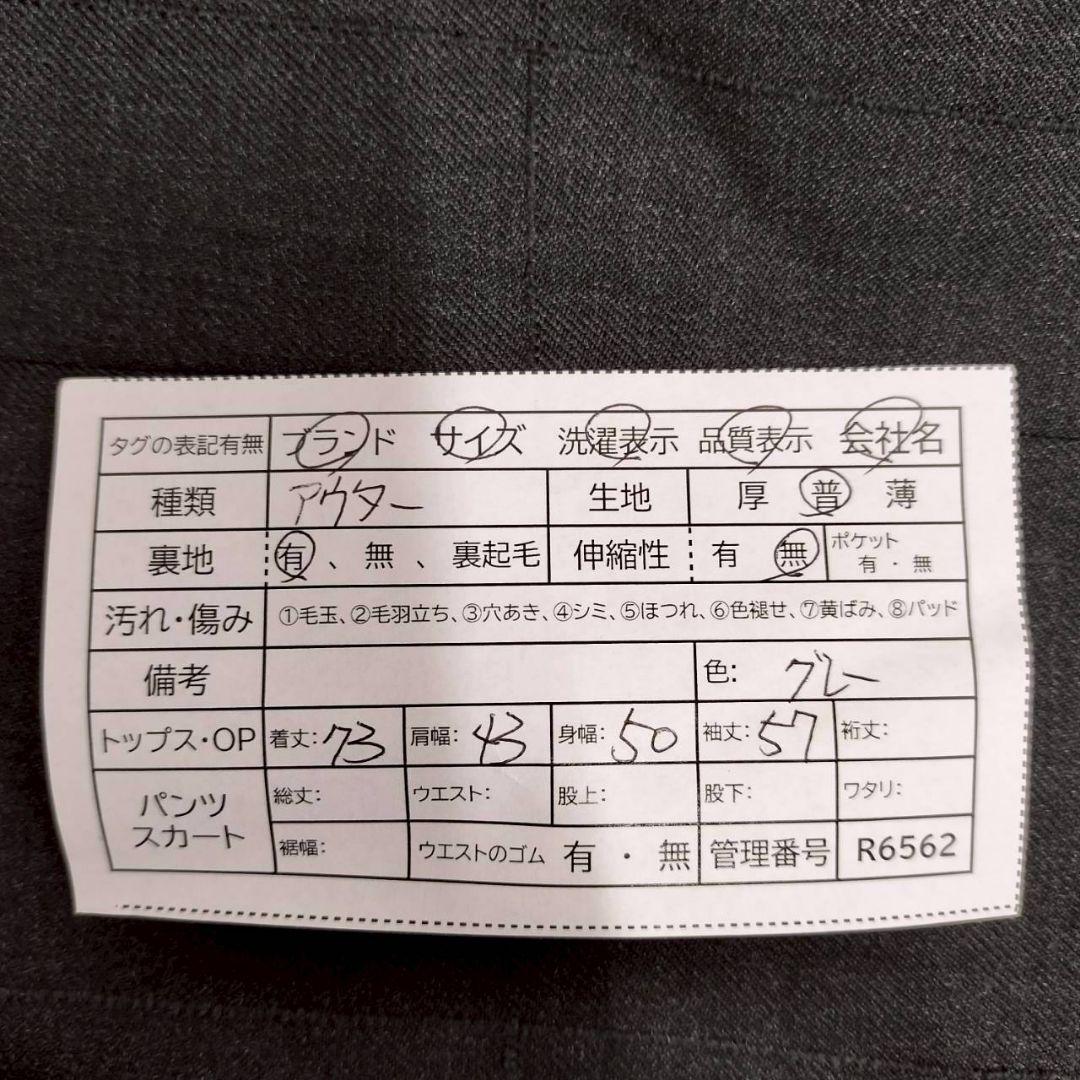 タグの表記有無 ブランド サイズ 洗濯表示 品質表示 会社名
種類 アウター 生地 厚 普 薄
裏地 有、無、裏起毛 伸縮性 有 無 ポケット 有・無
汚れ・傷み ①毛玉、②毛羽立ち、③穴あき、④シミ、⑤ほつれ、⑥色褪せ、⑦黄ばみ、⑧パッド
備考 色: グレー
トップス・OP 着丈:73 肩幅:43 身幅:50 袖丈:57 裄丈:
パンツ スカート 総丈: ウエスト: 股上: 股下: ワタリ:
裾幅: ウエストのゴム 有・無 管理番号 R6562